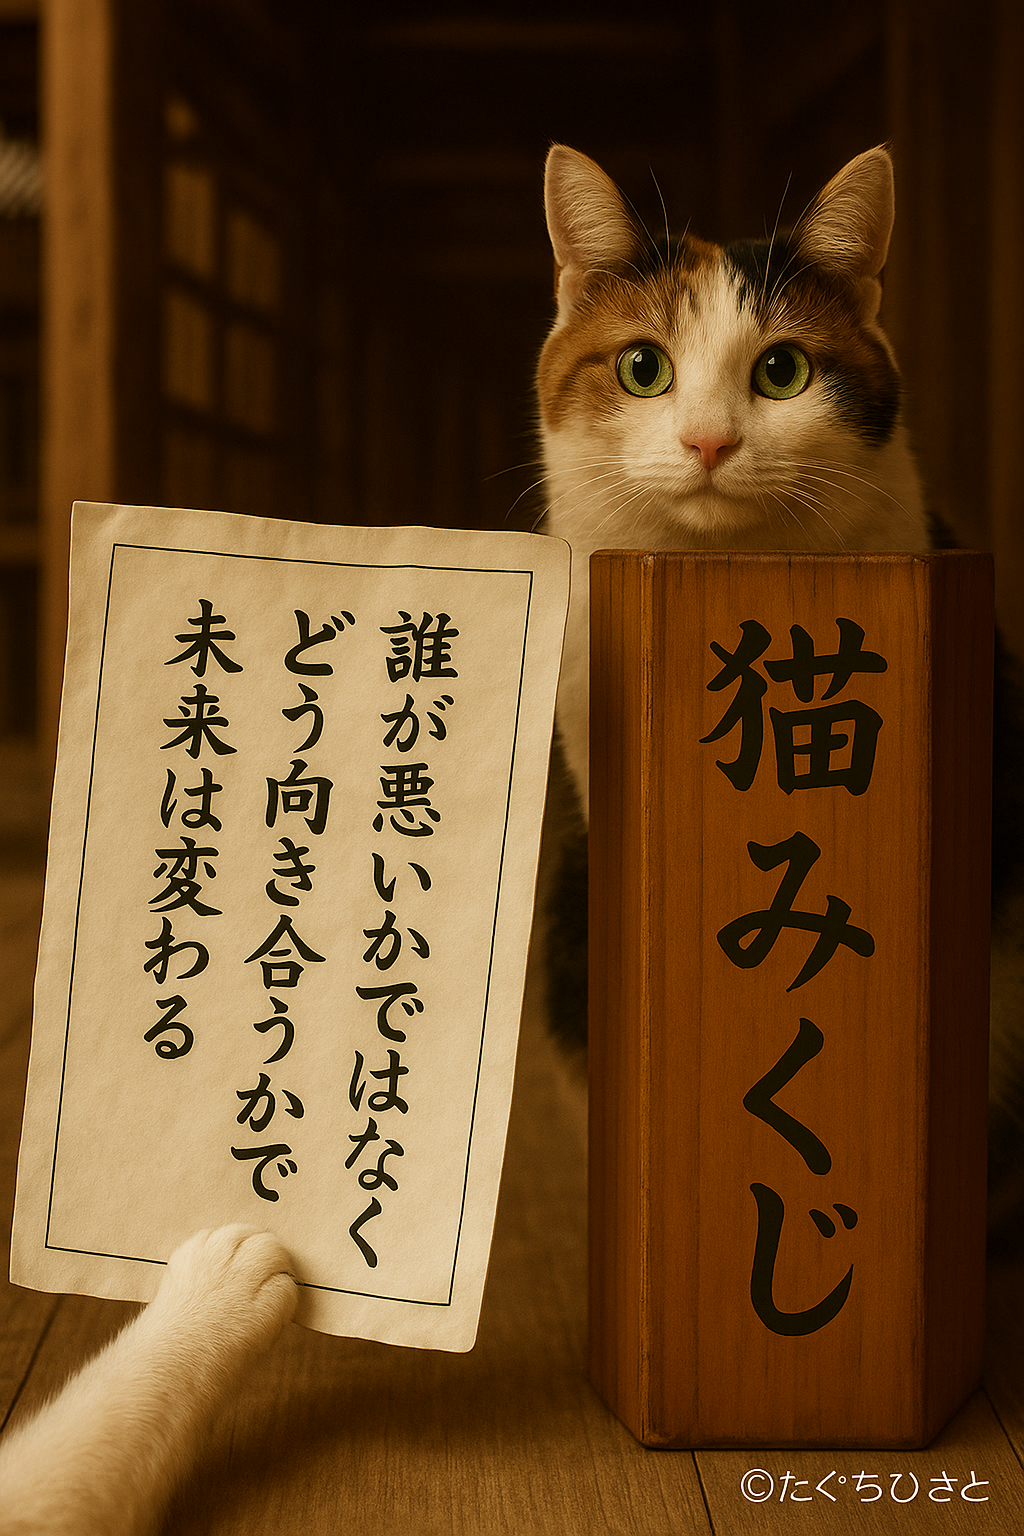 誰が悪いかではなく
どう向き合うかで
未来は変わる
猫みくじ
©たぐちひさと